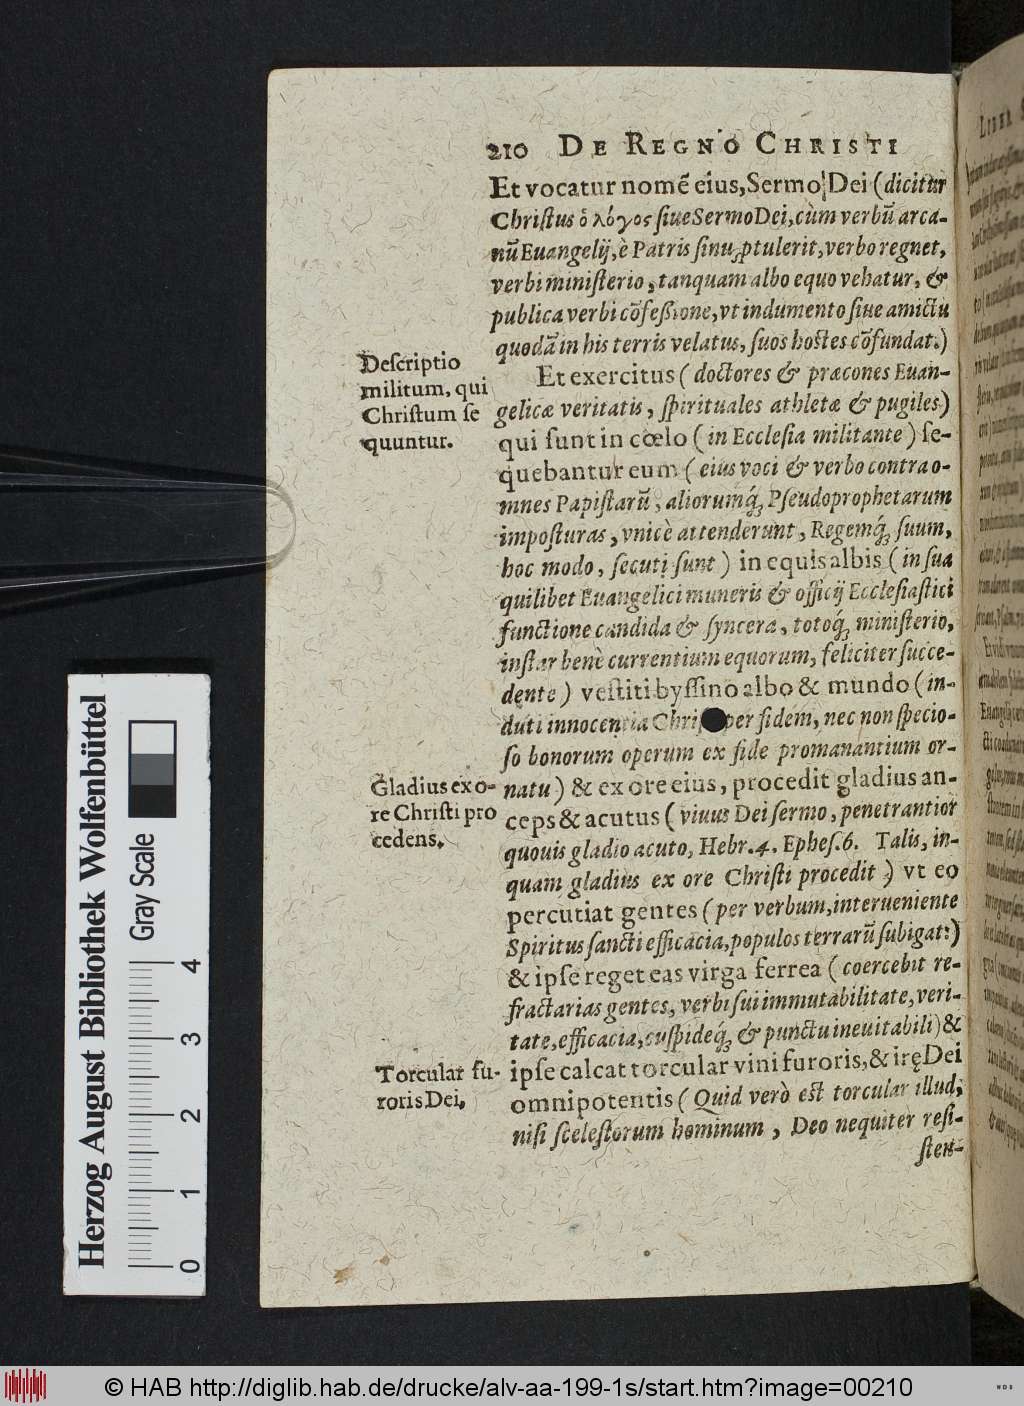 210 DE REGNO CHRISTI
Et vocatur nomẽ eius, Sermo Dei (dicitur
Chriſtus ὁ λόγος ſiue Sermo Dei, cùm verbũ arca-
nũ Euangelij, è Patris ſinu ꝓtulerit, verbo regnet,
verbi miniſterio, tanquam albo equo vehatur, &
publica verbi cõfeßione, vt indumento ſiue amictu
quodã in his terris velatus, ſuos hoſtes cõfundat:)
Deſcriptio
militum, qui
Chriſtum ſe
quuntur.
Et exercitus (doctores & præcones Euan-
gelicæ veritatis, ſpirituales athletæ & pugiles)
qui ſunt in cœlo (in Eccleſia militante) ſe-
quebantur eum (eius voci & verbo contra o-
mnes Papiſtarũ, aliorumq́; Pſeudoprophetarum
impoſturas, vnicè attenderunt, Regemq́; ſuum,
hoc modo, ſecuti ſunt) in equis albis (in ſua
quilibet Euangelici muneris & officij Eccleſiaſtici
functione candida & ſyncera, totoq́; miniſterio,
inſtar benè currentium equorum, feliciter ſucce-
dente) veſtiti byſſino albo & mundo (in-
duti innocentia Chri per fidem, nec non ſpecio-
ſo bonorum operum ex fide promanantium or-
natu) & ex ore eius, procedit gladius an-
ceps & acutus (viuus Dei ſermo, penetrantior
quouis gladio acuto, Hebr. 4. Epheſ. 6. Talis, in-
quam gladius ex ore Chriſti procedit) vt eo
percutiat gentes (per verbum, interueniente
Spiritus ſancti efficacia, populos terrarũ ſubigat:)
& ipſe reget eas virga ferrea (coercebit re-
fractarias gentes, verbi ſui immutabilitate, veri-
tate, efficacia, cuſpideq́; & punctu ineuitabili) &
ipſe calcat torcular vini furoris, & irę Dei
omnipotentis (Quid verò eſt torcular illud,
niſi ſceleſtorum hominum, Deo nequiter reſi-
ſten-
Gladius ex o-
re Chriſti pro
cedens.
Torcular fu-
roris Dei.
Herzog August Bibliothek Wolfenbüttel
Gray Scale
0 1 2 3 4
© HAB http://diglib.hab.de/drucke/alv-aa-199-1s/start.htm?image=00210